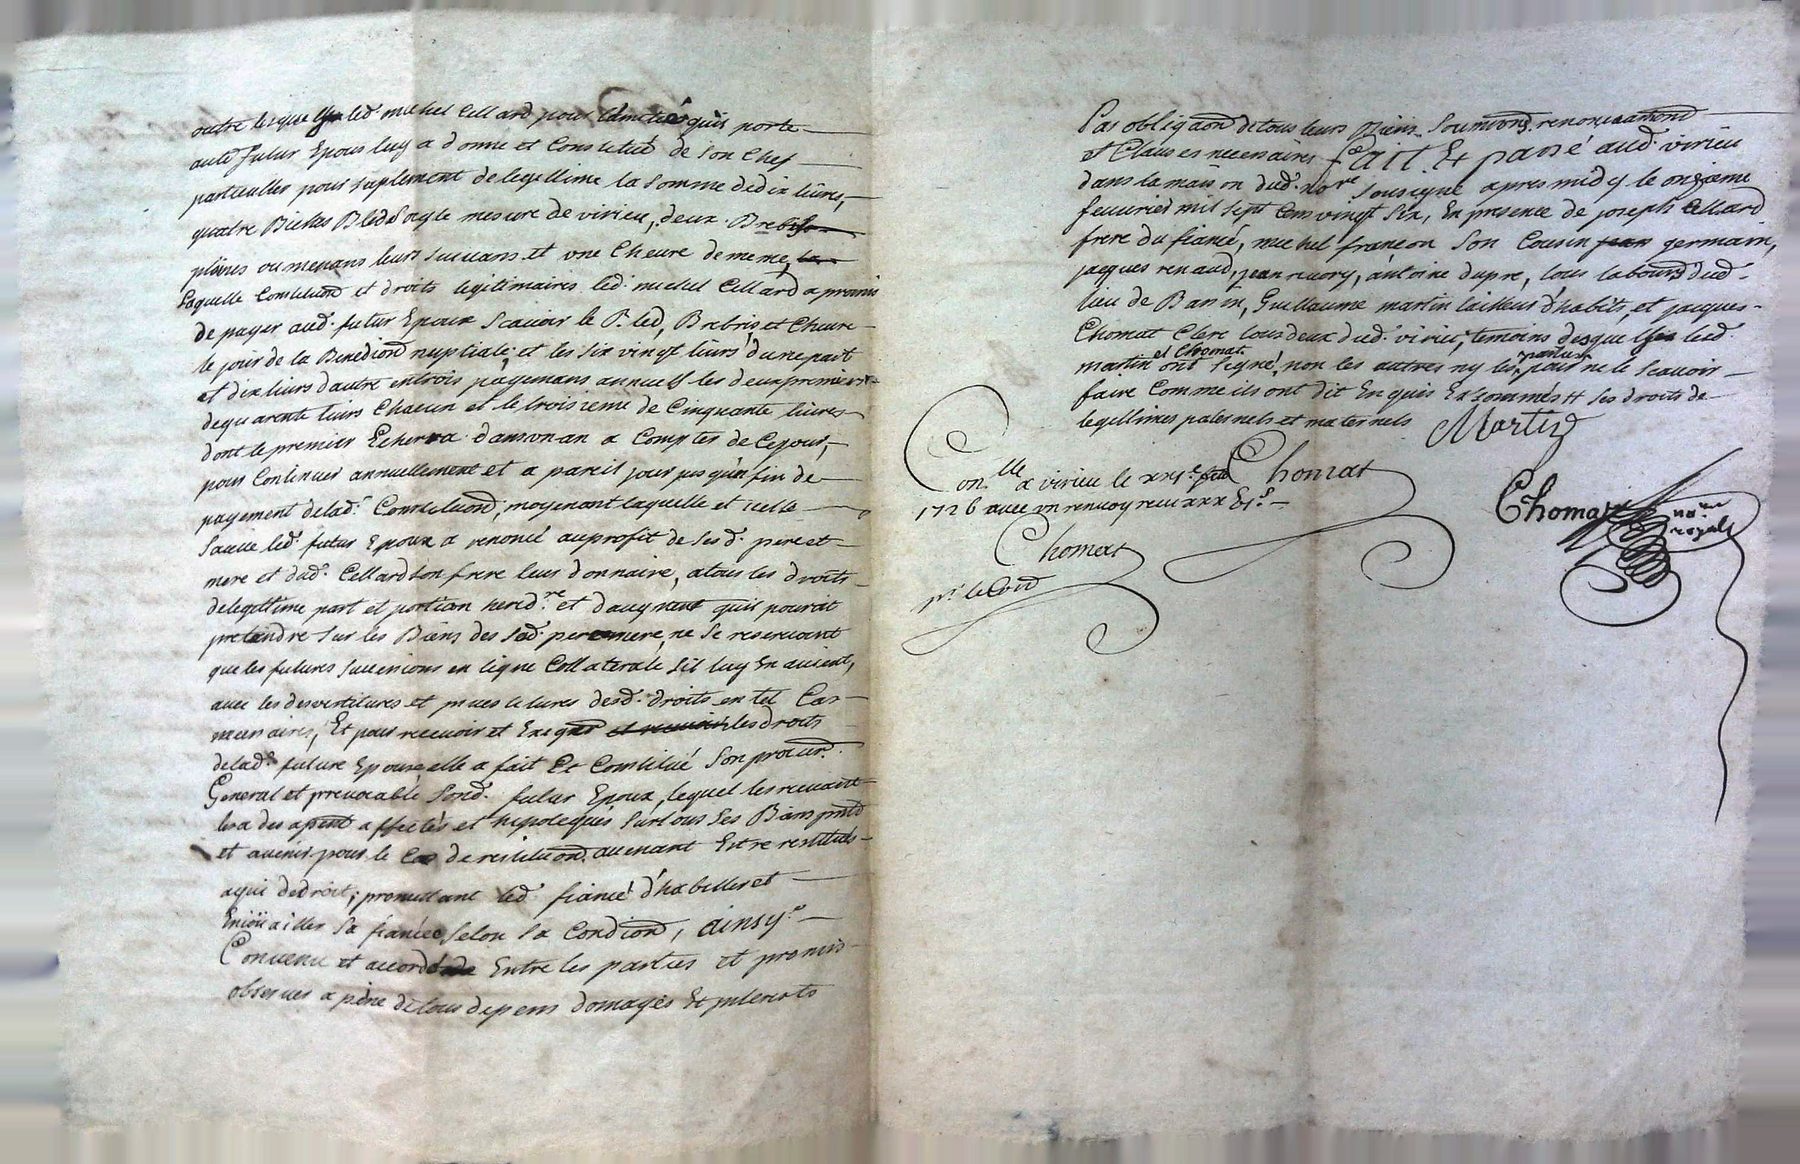 outre lesquelles led. michel Cellard pour lamitié quis porte
aud. futur Epous luy a donné et Constitué de Son Chef
particulier pour suplement de legittime la Somme de dix livres,
quatre Bichets Bled Segle mesure de virieu, deux Brebis
pleines ou menans leurs suivans et une Chevre de meme,
Laquelle Constituon et droits legitimaires led. michel Cellard a promis
de payer aud. futur Epoux Scavoir le Bled, Brebis, et Chevre
le jour de la Benedion nuptiale, et les six vingt livres d'une part
et dix livres d'autre en trois payemans annuels les deux premiers
de quarente livres Chacun et le troisieme de Cinquante livres
dont le premier Echerra dans un an a Compter de Ce jour,
pour Continuer annuellement et a pareil jour jusqu'a fin de
payement de lad. Constituon, moyenant laquelle et icelle
Sauve led. futur Epoux a renoncé au profit de Sesd. pere et
mere et dud. Cellard son frere leur donnaire, a tous les droits
de legittime part et portion hered.re et d'augment quis pouroit
pretendre sur les Biens des sed. pere mere, ne Se reservant
que les futures successions en ligne Collaterale sil luy En avient,
avec les desvestitures et investitures desd. droits en tel Cas
necessaires, Et pour recevoir et Exiger les droits
de lad. future Epouse, elle a fait Et Constitué Son procur.
General et irrevocable Sond. futur Epoux, lequel les recevant
les a des apresent affectés et hipotequés sur tous Ses Biens pnts
et avenir pour le Cas de restituon avenant Estre restitués
a qui de droit; promettant led. fiancé d'habiller et
Enjoüailler Sa fiancée Selon Sa Condion, ainsy
Convenu et accordé Entre les parties et promis
observer a peine de tous depens domages Et interests
Par obligaon de tous leurs Biens Soumions, renonciaons
et Clauses necessaires fait Et passé aud. virieu
dans la maison dud. no.re Sousigné apres midy le onzieme
fevrier mil sept Cens vingt Six, En presence de joseph Cellard
frere du fiancé, michel françon Son Cousin germain,
jacques renaud, jean rivory, antoine dupre, tous labours dud.
lieu de Banin, Guillaume martin tailleur d'habits, et jacques
Chomat Clerc tous deux dud. virieu, temoins desquels led.
et Chomat
martin ont signé, non les autres ny les parties ne le Scavoir
faire Comme ils ont dit Enquis Et sommés # ses droits de
legitimes paternels et maternels
Martin
Chomat
Con.lle a virieu le
1726 avec un renvoy
Chomat
Chomat no.re royal